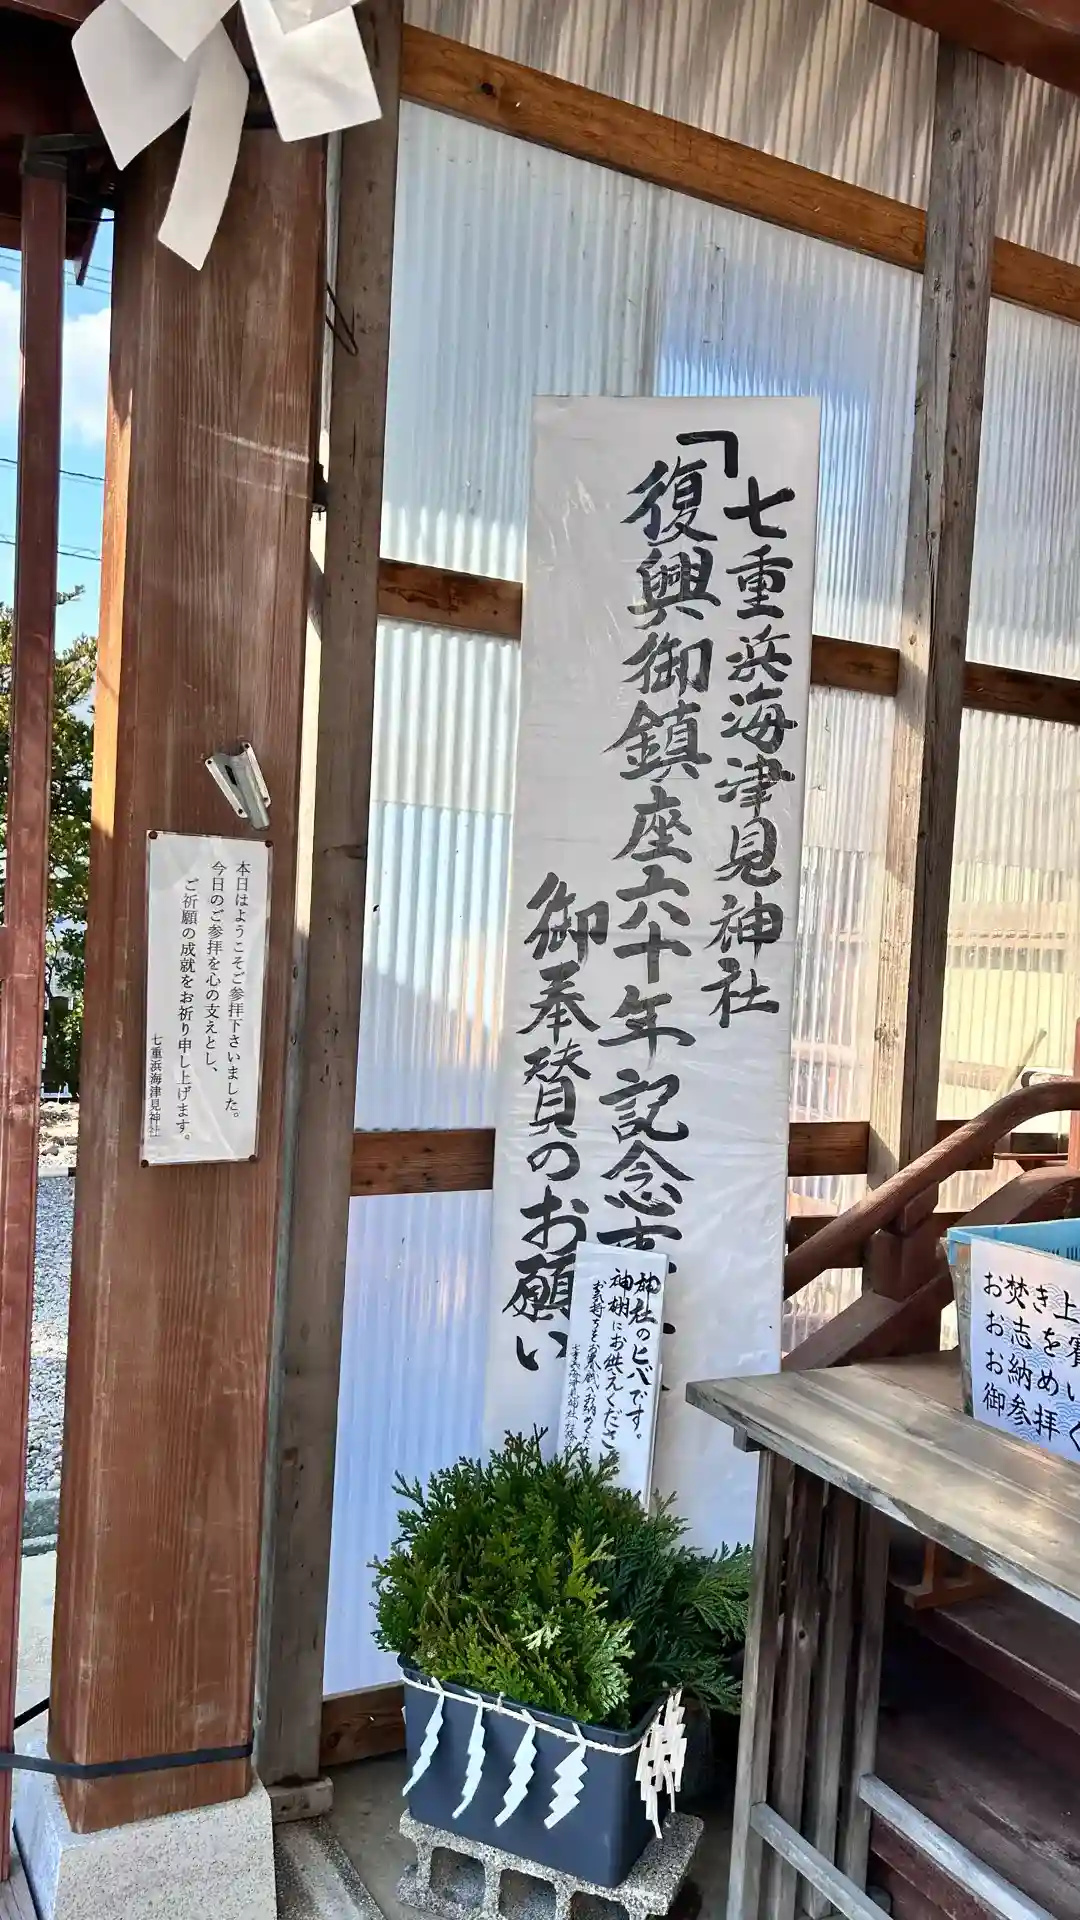 七重浜海津見神社
「復興御鎮座六十年記念
御奉賛のお願い
本日はようこそご参拝下さいました。
今日のご参拝を心の支えとし、
ご祈願の成就をお祈り申し上げます。
七重浜海津見神社
神社のヒバです。
神棚にお供えくださ
お気持ちをお賽銭へお納めくだ
お焚き上
お志を賽
お納めい
御参拝く